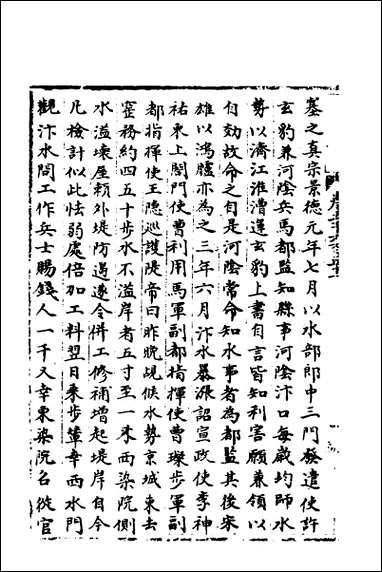 塞之真宗景德元年七月以水部郎中三門發運使許
玄豹兼河陰兵馬都監知縣事河陰汴口每歲均師水
勢以濟江淮漕運玄豹上書自言皆知利害願兼領以
自効故命之自是河陰常命知水事者為都監其後宋
雄以鴻臚亦為之三年六月汴水暴漲詔宣政使李神
祐東上閤門使曹利用馬軍副都指揮使曹璨步軍副
都指揮使王隱巡護隄帝曰昨晩覘候水勢京城東去
窰務約四五十步水不溢岸者五寸至一未西染院側
水溢壊屋賴外堤防遏遂令併工修補增起堤岸自今
凡檢計似此怯弱處倍加工料翌日乗步輦幸西水門
觀汴水間工作兵士賜錢人一千又幸東染院名從官